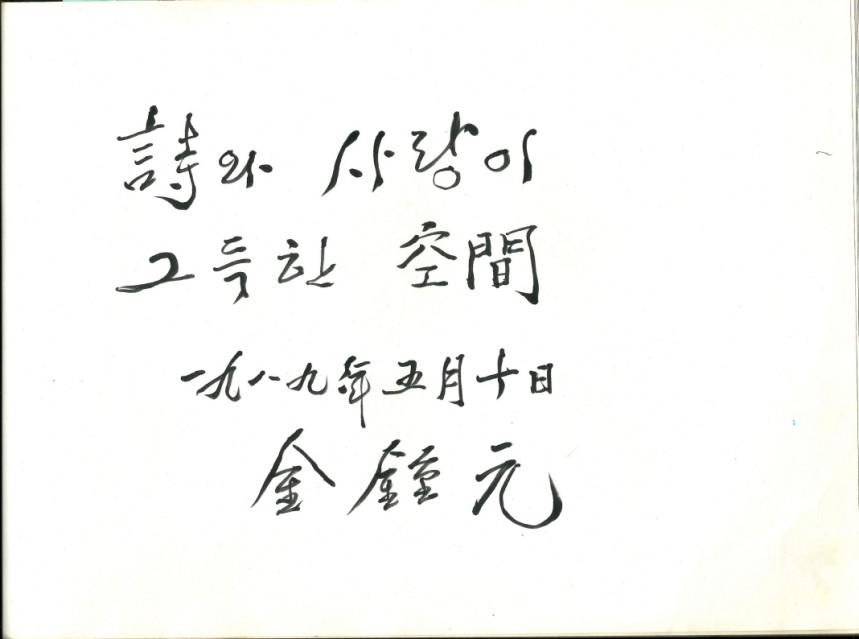 詩와 사랑이
그득한 空間
一九八九年 五月 十日
金鍾元